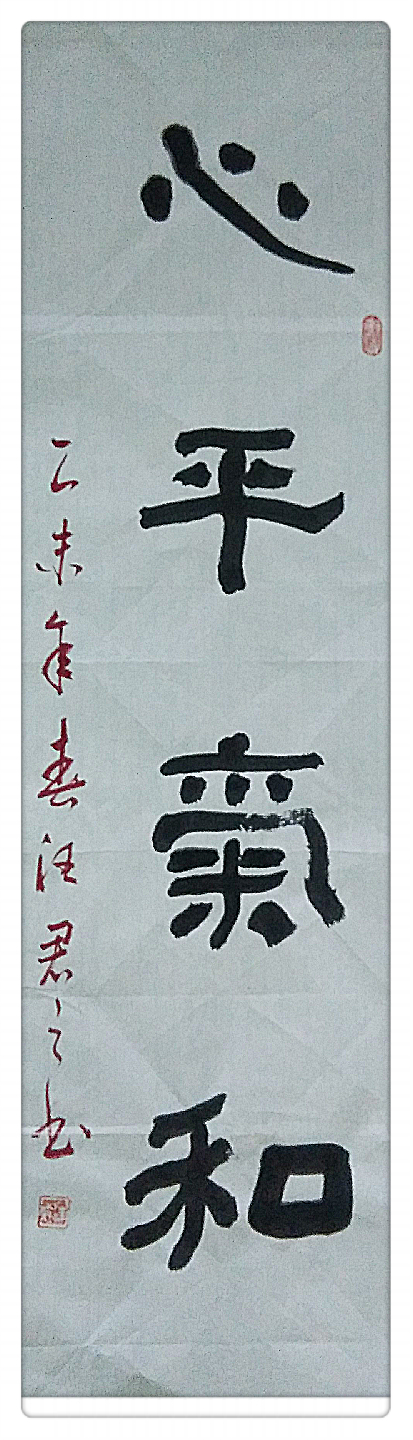 心平氣和
乙未年春汪君之书